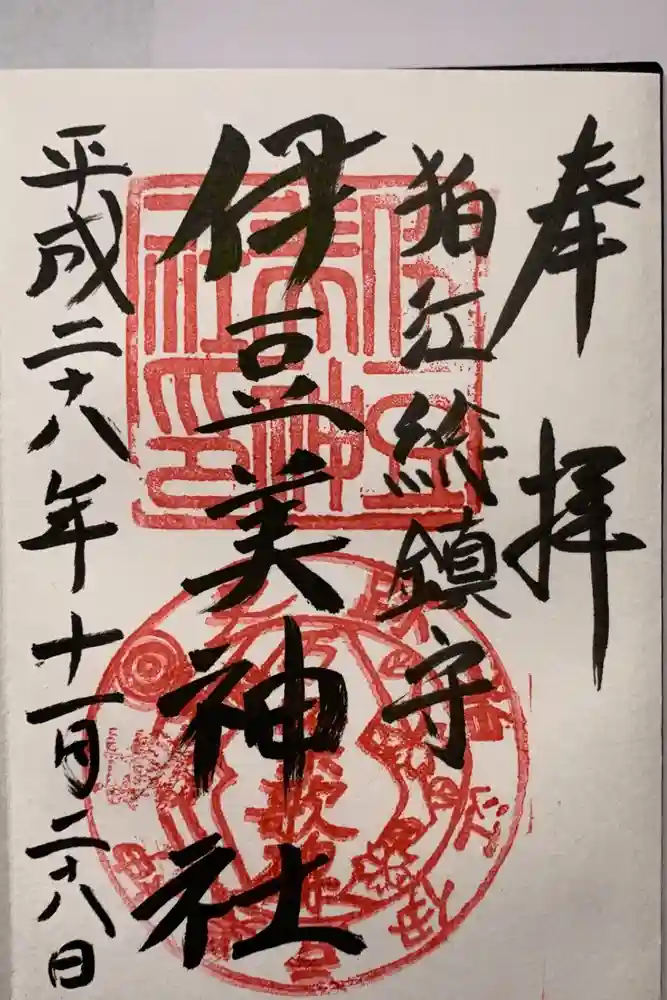 奉拝
狛江総鎮守
伊豆美神社
平成二十八年十一月二十八日